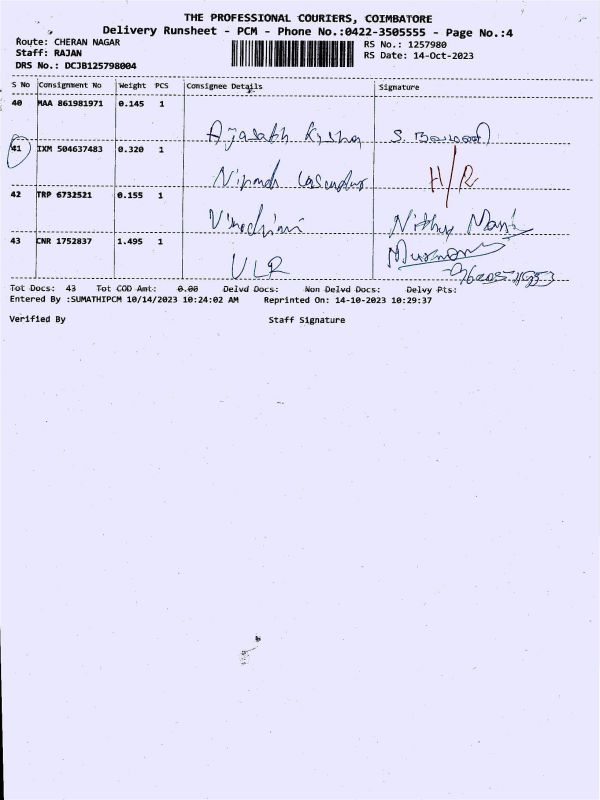 THE PROFESSIONAL COURIERS, COIMBATORE
Delivery Runsheet - PCM - Phone No.:0422-3505555 - Page No.:4
Route: CHERAN NAGAR
RS No.: 1257980
Staff: RAJAN
RS Date: 14-Oct-2023
DRS No.: DCJB125798004
S No Consignment No Weight PCS Consignee Details Signature
40 MAA 861981971 0.145 1
41 IXM 504637483 0.320 1
H/R
42 TRP 6732521 0.155 1
Nithya
43 CNR 1752837 1.495 1
VLR
Tot Docs: 43 Tot COD Amt: 0.00 Delvd Docs: Non Delvd Docs: Delvy Pts:
Entered By :SUMATHIPCM 10/14/2023 10:24:02 AM Reprinted On: 14-10-2023 10:29:37
Verified By Staff Signature